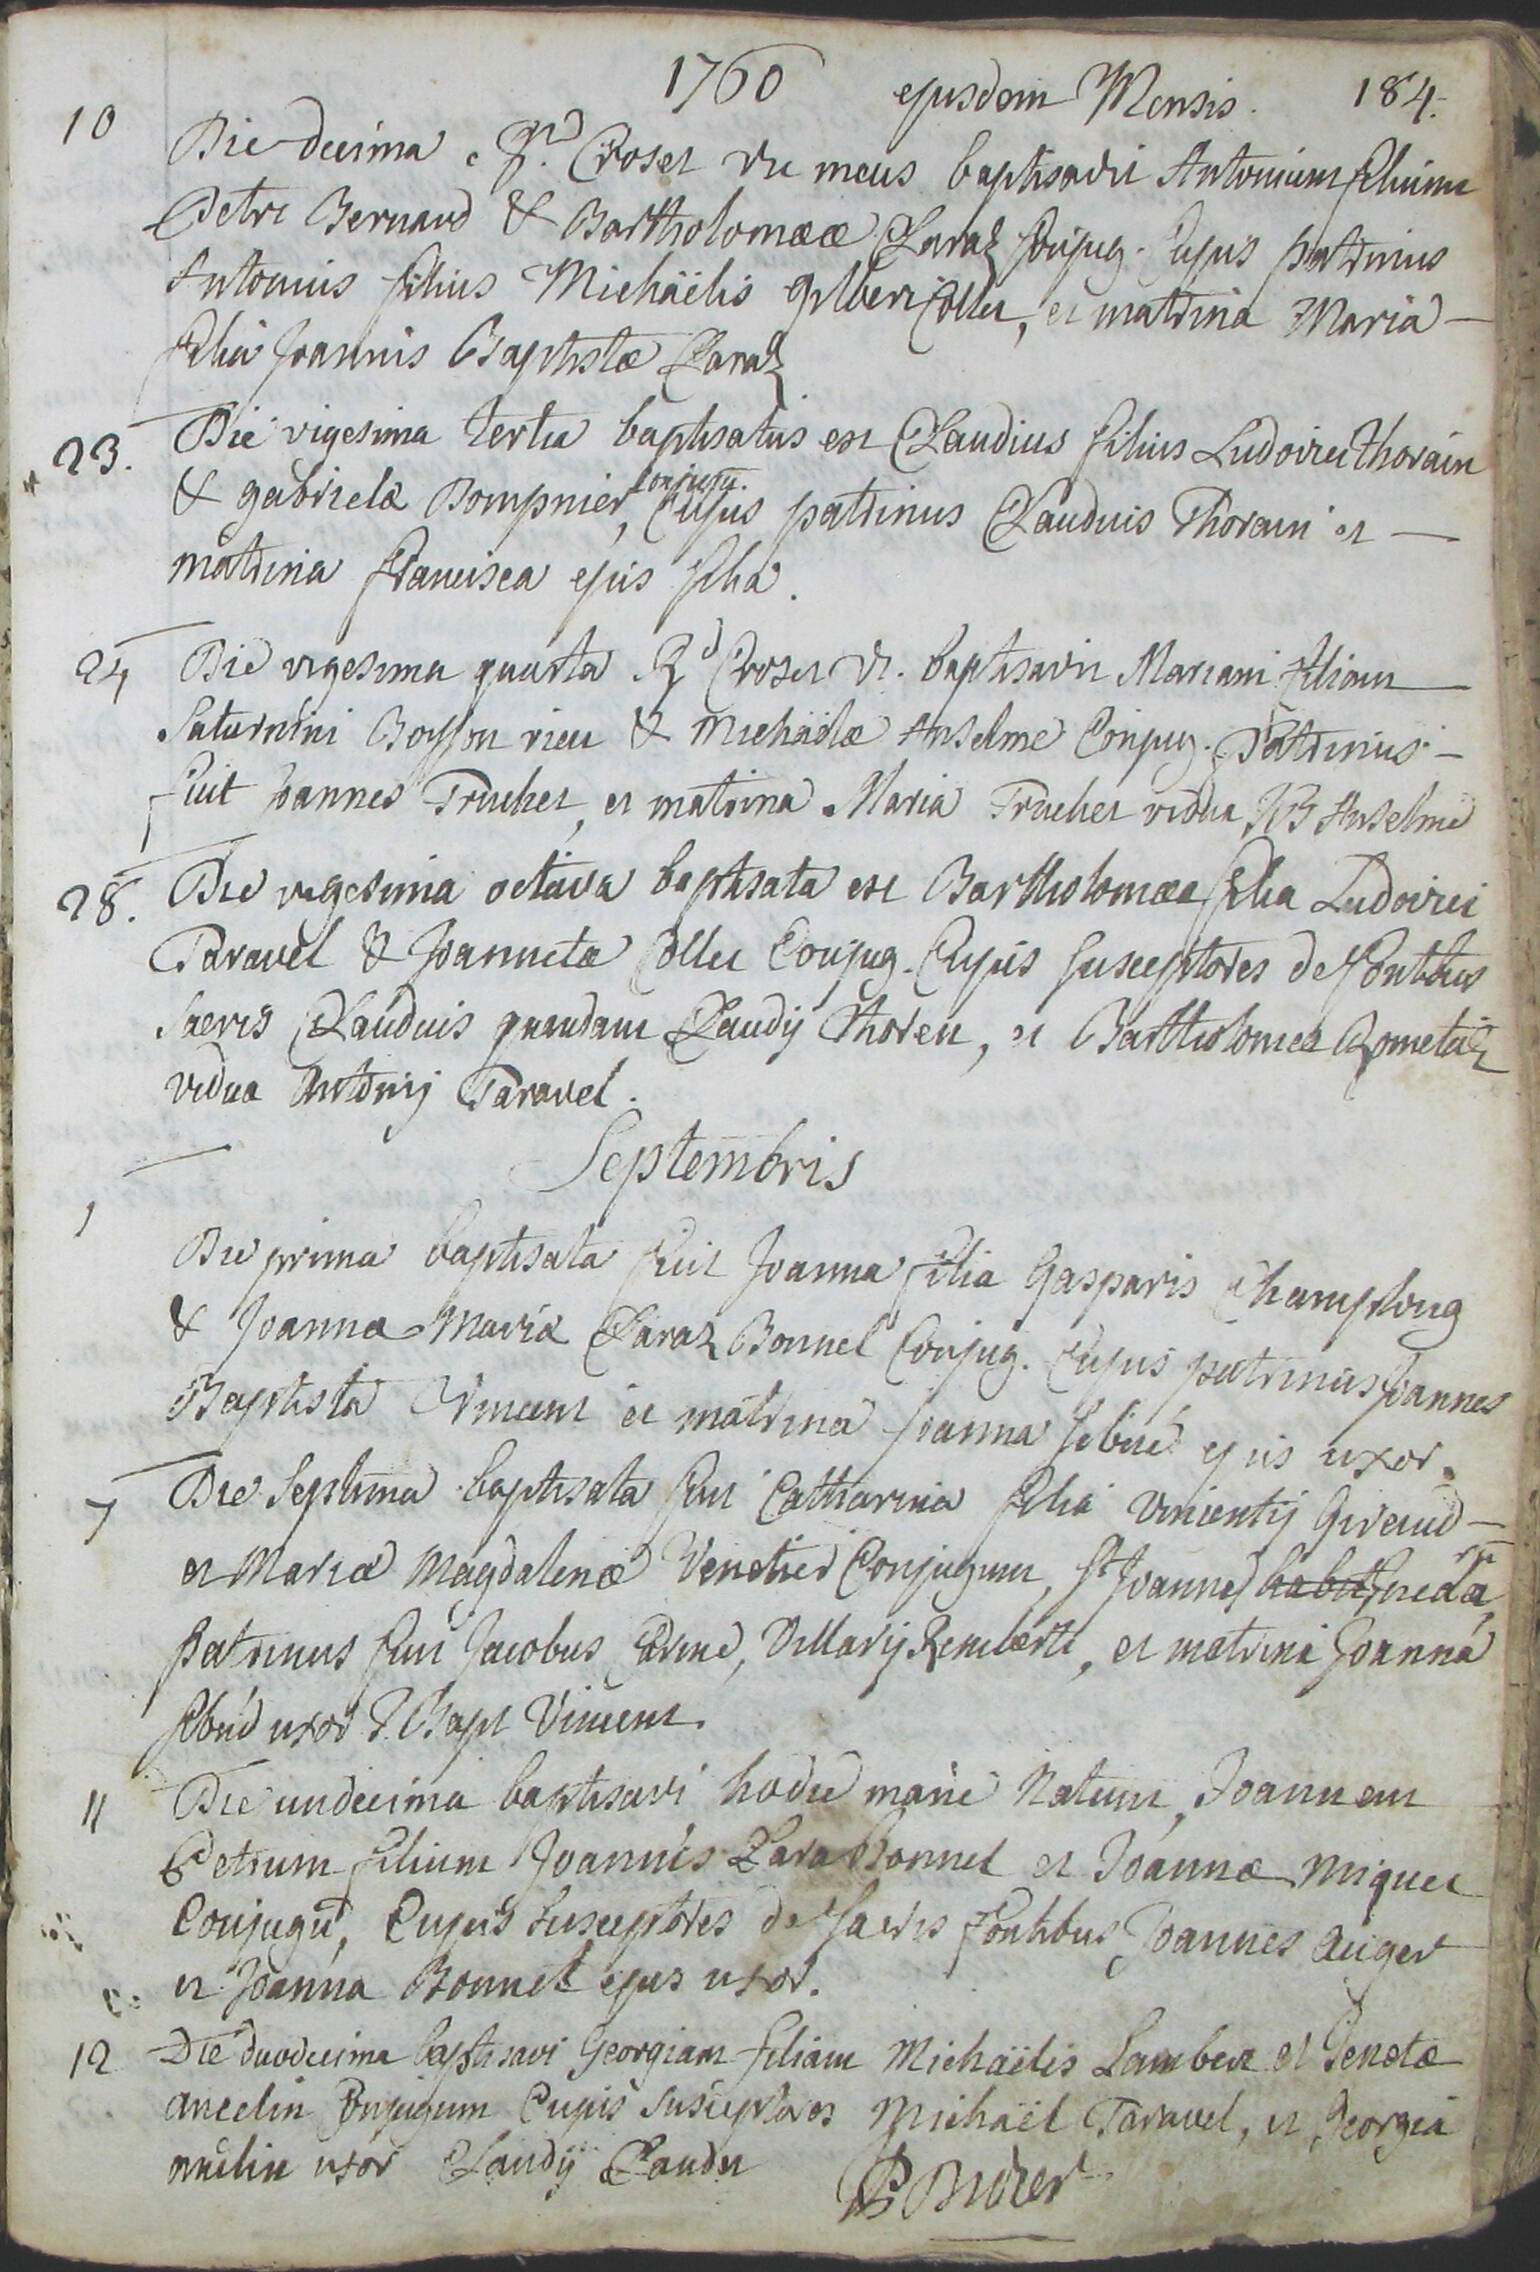 1760 ejusdem Mensis. 184.
10 Die decima Rd Croset vic meus baptisavit Antonium filium
Petri Bernard & Bartholomææ Claraz Conjug. Cujus patrinus
Antonius filius Michaëlis Gilbert Collet, et matrina Maria
filia Joannis Baptistæ Claraz
23. Die vigesima tertia baptisatus est Claudius filius Ludovici Thorain
& Gabrielæ Bompnier, conjugu. Cujus patrinus Claudius Thorain et
matrina Francisca ejus filia.
24 Die vigesima quarta Rd Croset vic. baptisavit Mariam filiam
Saturnini Bosson rieu & Michaëlæ Anselme Conjug. Patrinus
fuit Joannes Truchet, et matrina Maria Truchet vidua JB Anselme
28. Die vigesima octava baptisata est Bartholomæa filia Ludovici
Taravel & Joannetæ Collet Conjug. Cujus susceptores de fontibus
sacris Claudius quondam Claudij Thoren, et Bartholomea Rometaz
vidua Antonij Taravel.
Septembris
1 Die prima baptisata fuit Joanna filia Gasparis Champlong
& Joannæ Mariæ Claraz Bonnel Conjug. Cujus patrinus Joannes
Baptista Vincent et matrina Joanna Sibué ejus uxor.
7 Die septima baptisata fuit Catharina filia Vincentij Giraud
et Mariæ Magdalenæ Venetier Conjugum, St Joannes
patrinus fuit Jacobus, Villarij Remberti, et matrina Joanna
Sibué uxor J. Bapt Vincent.
11 Die undecima baptisavi hodie mane Natum, Joannem
Petrum filium Joannis Clara Bonnel et Joannæ Miquet
Conjugū, Cujus susceptores de sacris fontibus, Joannes Auger
et Joanna Bonnel ejus uxor.
12 Die duodecima baptisavi Georgiam filiam Michaëlis Lambert et Benetæ
Ancelin Conjugum Cujus susceptores Michaël Taravel, et Georgia
uxor Claudij